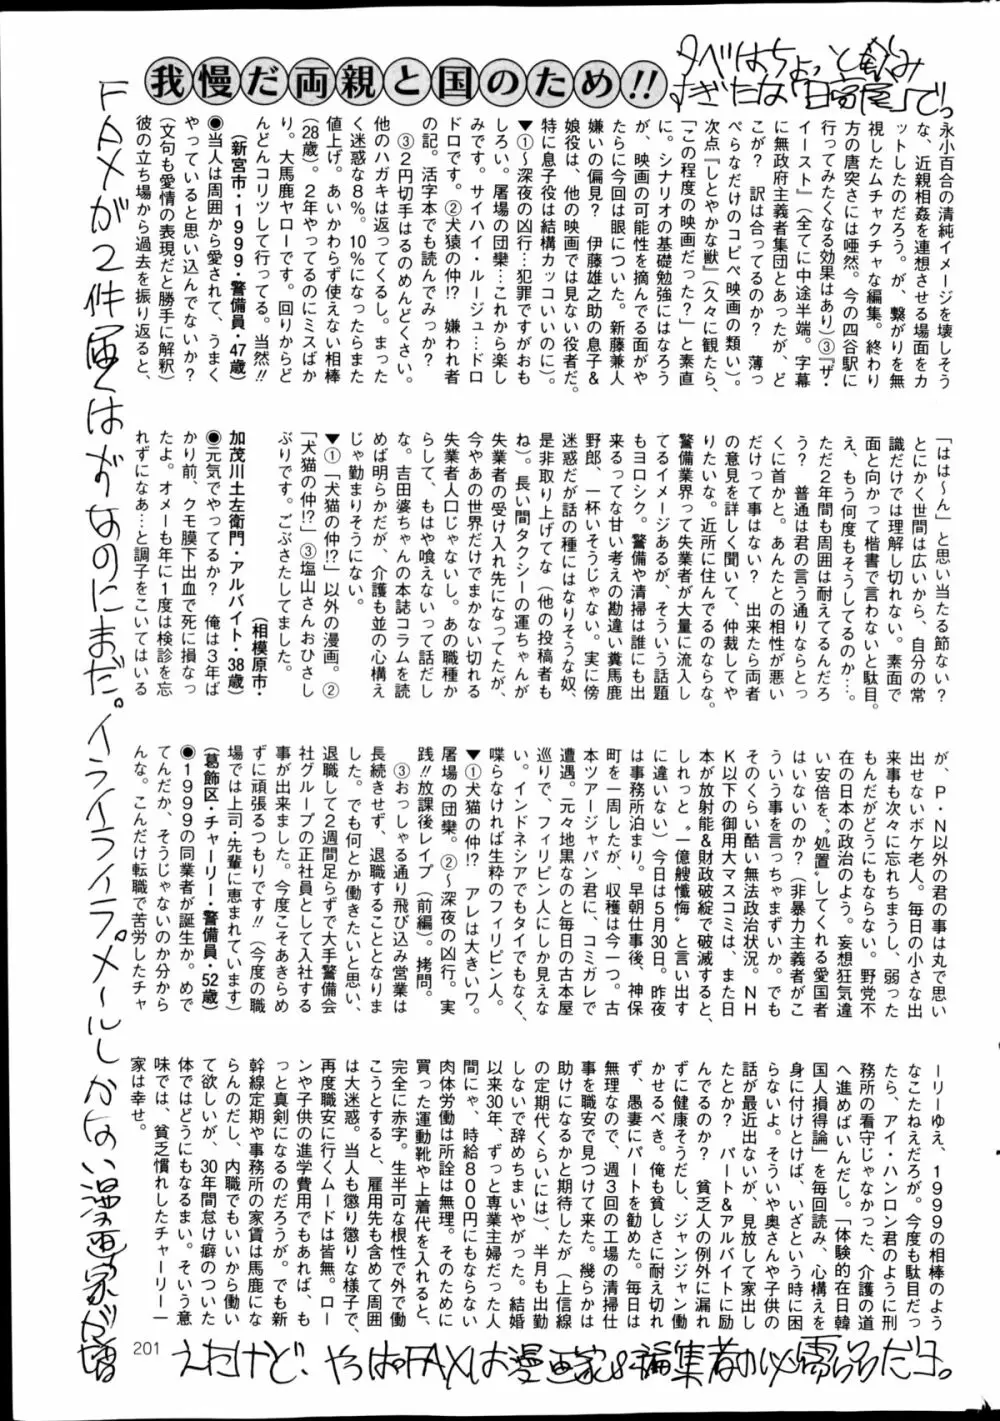 我慢だ両親と国のため!!
夕べはちょっと飲み
すぎたな「日高屋」でっ
永小百合の清純イメージを壊しそう
な、近親相姦を連想させる場面をカ
ットしたのだろう。が、繋がりを無
視したムチャクチャな編集。終わり
方の唐突さには唖然。今の四谷駅に
行ってみたくなる効果はあり)③『ザ・
イースト』(全てに中途半端。字幕
に無政府主義者集団とあったが、ど
こが? 訳は合ってるのか? 薄っ
ぺらなだけのコピペ映画の類い)。
次点『しとやかな獣』(久々に観たら、
「この程度の映画だった?」と素直
に。シナリオの基礎勉強にはなろう
が、映画の可能性を摘んでる面がや
たらに今回は眼についた。新藤兼人
嫌いの偏見? 伊藤雄之助の息子&
娘役は、他の映画では見ない役者だ。
特に息子役は結構カッコいいのに)。
▼①~深夜の凶行…犯罪ですがおも
しろい。屠場の団欒…これから楽し
みです。サイハイ・ルージュ…ドロ
ドロです。②犬猿の仲!? 嫌われ者
の記。活字本でも読んでみっか?
③2円切手はるのめんどくさい。
他のハガキは返ってくるし。まった
く迷惑な8%。10%になったらまた
値上げ。あいかわらず使えない相棒
(28歳)。2年やってるのにミスばか
り。大馬鹿ヤローです。回りからど
んどんコリツして行ってる。当然!!
(新宮市・1999・警備員・47歳)
●当人は周囲から愛されて、うまく
やっていると思い込んでないか?
(文句も愛情の表現だと勝手に解釈)
彼の立ち場から過去を振り返ると、
「はは~ん」と思い当たる節ない?
とにかく世間は広いから、自分の常
識だけでは理解し切れない。素面で
面と向かって楷書で言わないと駄目。
え、もう何度もそうしてるのか…。
ただ2年間も周囲は耐えてるんだろ
う? 普通は君の言う通りならとっ
くに首かと。あんたとの相性が悪い
だけって事はない? 出来たら両者
の意見を詳しく聞いて、仲裁してや
りたいな。近所に住んでるのならな。
警備業界って失業者が大量に流入し
てるイメージあるが、そういう話題
もヨロシク。警備や清掃は誰にも出
来るってな甘い考えの勘違い糞馬鹿
野郎、一杯いそうじゃない。実に傍
迷惑だが話の種にはなりそうな奴、
是非取り上げてな(他の投稿者も
ね)。長い間タクシーの運ちゃんが
失業者の受け入れ先になってたが、
今やあの世界だけでまかない切れる
失業者人口じゃないし。あの職種か
らして、もはや喰えないって話だし
な。吉田婆ちゃんの本誌コラムを読
めば明らかだが、介護も並の心構え
じゃ勤まりそうにない。
▼①「犬猫の仲!?」以外の漫画。②
「犬猫の仲!?」③塩山さんおひさし
ぶりです。ごぶさたしてました。
(相模原市・
加茂川土左衛門・アルバイト・38歳)
●元気でやってるか? 俺は3年ば
かり前、クモ膜下出血で死に損なっ
たよ。オメーも年に1度は検診を忘
れずになあ…と調子をこいてはいる
が、P・N以外の君の事は丸で思い
出せないボケ老人。毎日の小さな出
来事も次々に忘れちまうし、弱った
もんだがどうにもならない。野党不
在の日本の政治のよう。妄想狂気違
い安倍を、〝処置〟してくれる愛国者
はいないのか?(非暴力主義者がこ
ういう事を言っちゃまずいか。でも
そのくらい酷い無法政治状況。NH
K以下の御用大マスコミは、また日
本が放射能&財政破綻で破滅すると、
しれっと〝一億総懺悔〟と言い出す
に違いない)今日は5月30日。昨夜
は事務所泊まり。早朝仕事後、神保
町を一周したが、収穫は今一つ。古
本ツアージャパン君に、コミガレで
遭遇。元々地黒なのと毎日の古本屋
巡りで、フィリピン人にしか見えな
い。インドネシアでもタイでもなく、
喋らなければ生粋のフィリピン人。
▼①犬猫の仲!? アレは大きいワ。
屠場の団欒。②~深夜の凶行。実
践!!放課後レイプ(前編)。拷問。
③おっしゃる通り飛び込み営業は
長続きせず、退職することとなりま
した。でも何とか働きたいと思い、
退職して2週間足らずで大手警備会
社グループの正社員として入社する
事が出来ました。今度こそあきらめ
ずに頑張るつもりです!!(今度の職
場では上司・先輩に恵まれています)
(葛飾区・チャーリー・警備員・52歳)
●1999の同業者が誕生か。めで
てんだか、そうじゃないのか分から
んな。こんだけ転職で苦労したチャ
ーリーゆえ、1999の相棒のよう
なこたねえだろが。今度も駄目だっ
たら、アイ・ハンロン君のように刑
務所の看守じゃなかった、介護の道
へ進めばいいんだし。「体験的在日韓
国人損得論」を毎回読み、心構えを
身に付けとけば、いざという時に困
らないよ。そういや奥さんや子供の
話が最近出ないが、見放して家出し
たとか? パート&アルバイトに励
んでるのか? 貧乏人の例外に漏れ
ずに健康そうだし、ジャンジャン働
かせるべき。俺も貧しさに耐え切れ
ず、愚妻にパートを勧めた。毎日は
無理なので、週3回の工場の清掃仕
事を職安で見つけて来た。幾らかは
助けになるかと期待したが(上信線
の定期代くらいには)、半月も出勤
しないで辞めちまいやがった。結婚
以来30年、ずっと専業主婦だった人
間にゃ、時給800円にもならない
肉体労働は所詮は無理。そのために
買った運動靴や上着代を入れると、
完全に赤字。生半可な根性で外で働
こうとすると、雇用先も含めて周囲
は大迷惑。当人も懲り懲りな様子で、
再度職安に行くムードは皆無。ロー
ンや子供の進学費用でもあれば、も
っと真剣になるのだろうが。でも新
幹線定期や事務所の家賃は馬鹿にな
らんのだし、内職でもいいから働い
て欲しいが、30年間怠け癖のついた
体ではどうにもなるまい。そういう意
味では、貧乏慣れしたチャーリー一
家は幸せ。
FAXが2件届くはずなのにまだ。イライライライラ。メールしかない漫画家が増
えたけど、やっぱFAXは漫画家&編集者の必需品だヨ。
201